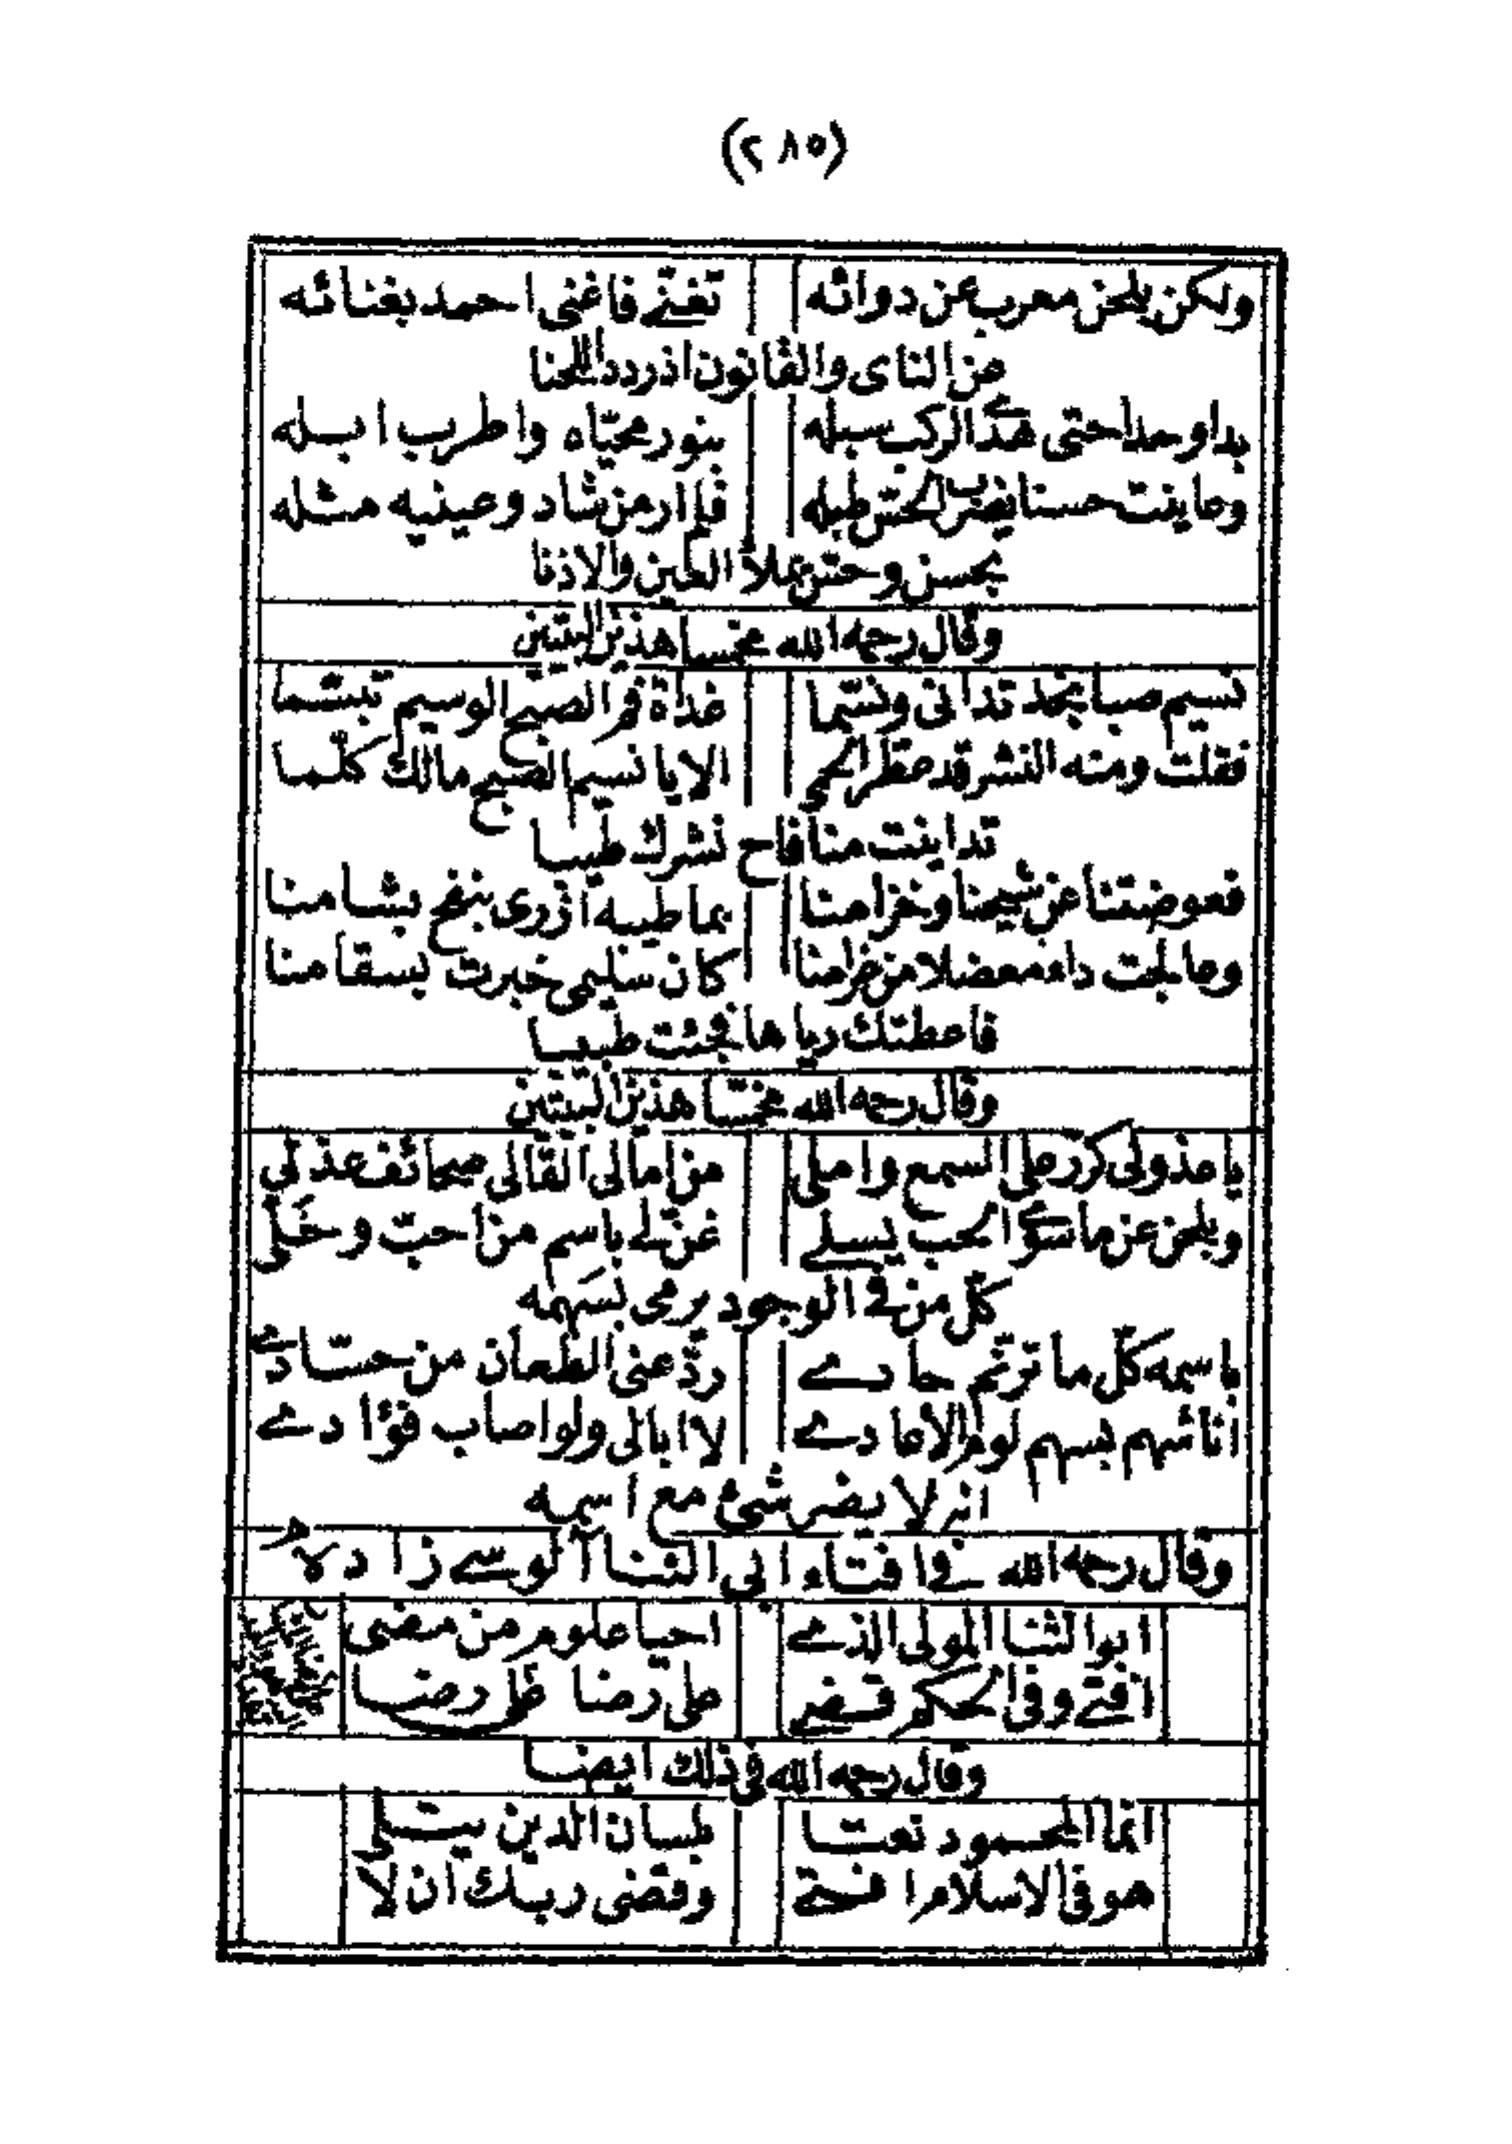 (٢٨٥)
ولكن بلحن معرب عن دوائه تغنّى فاغنى احمد بغنائه
من الناى والقانون اذ ردد اللحنا
بدا وحدا حتى هدى الركب سبله بنور محيّاه واطرب ابله
وعاينت حسنا يضرب الحسّ طبله فلم ار من شاد وعينيه مثله
بحسن وحسّ يملأ العين والاذنا
وقال رحمه الله مخمسا هذين البيتين
نسيم صبا نجد تدانى ونسّما غداة فم الصبح الوسيم تبسّما
فقلت ومنه النشر قد عطر الحمى الا يا نسيم الصبح مالك كلّما
تدانيت منا فاح نشرك طيبا
فعوضتنا عن شيحنا وخزامنا بما طيبه ازرى بنفح بشامنا
وعالجت داء معضلا من غرامنا كان سليمى خبرت بسقامنا
فاعطتك رياها فجئت طبيبا
وقال رحمه الله مخمّسا هذين البيتين
يا عذولى كرر على السمع واملى من امالى القالى صحائف عذلى
وبلحن عن ما سوى الحب يسلى غنّ لى باسم من احبّ وخَلّى
كلّ من فى الوجود يرمى بسَهمه
باسمه كلّ ما ترنّم حادى ردّ عنى الطعان من حسّادى
انا شهم بسهم لوم الاعادى لا ابالى ولو اصاب فؤادى
انه لا يضر شئ مع اسمه
وقال رحمه الله فى افتاء ابى الثنا آلوسى زاده
ابو الثنا المولى الذى احيا علوم من مضى
افتى وفى الحكم قضى على رضا ظل رضا
وقال رحمه الله فى ذلك ايضا
انما المحمود نعتّا بلسان الدين يتلى
هو فى الاسلام افتى وقضى ربك ان لا